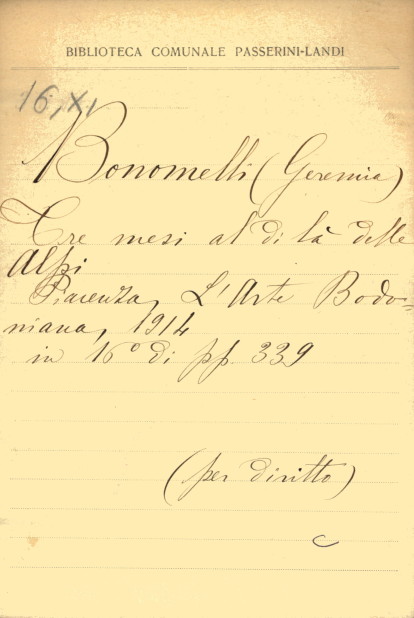 BIBLIOTECA COMUNALE PASSERINI-LANDI
16, XI
Bonomelli (Geremia)
Tre mesi al di là delle
Alpi
Piacenza, L'Arte Bodo=
niana, 1914
in 16° di pp. 339
(per diritto)
C